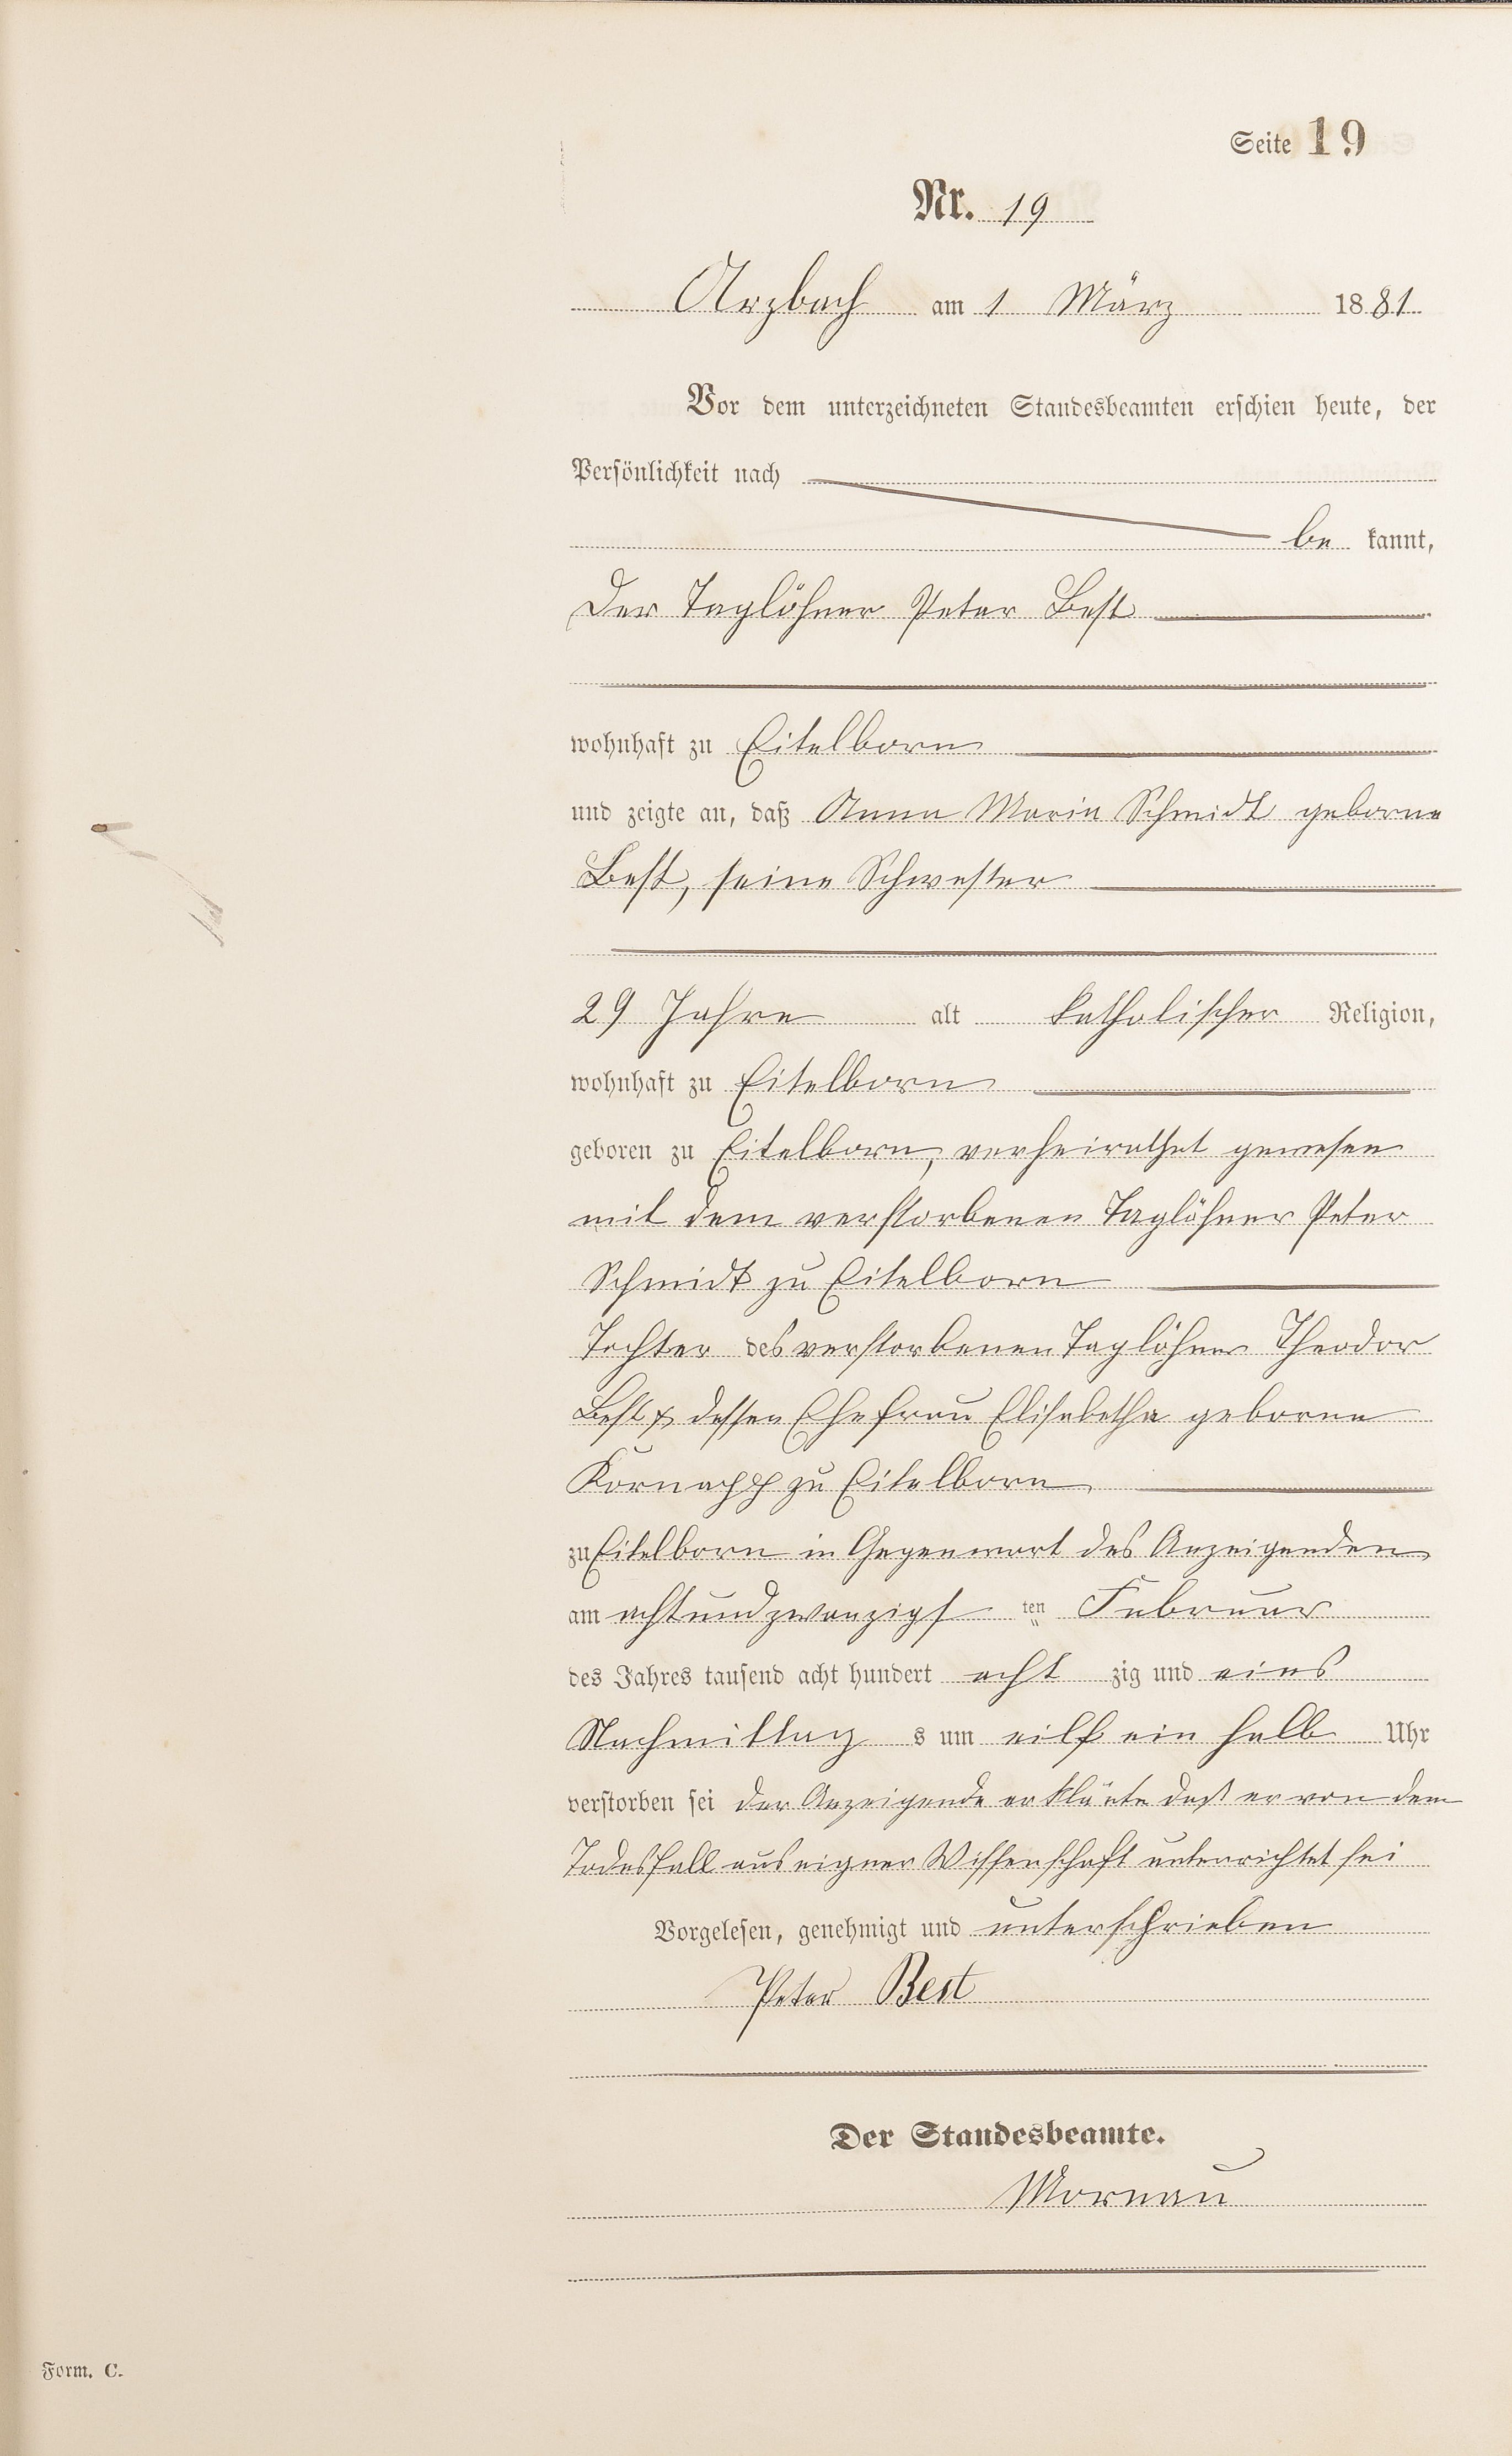 Seite 19
Nr. 19
Arzbach am 1 März 1881
Vor dem unterzeichneten Standesbeamten erschien heute, der
Persönlichkeit nach
be kannt,
Der Taglöhner Peter Best
wohnhaft zu Eitelborn
und zeigte an, daß Anna Maria Schmidt geborne
Best, seine Schwester
29 Jahre alt katholischer Religion,
wohnhaft zu Eitelborn
geboren zu Eitelborn, verheirathet gewesen
mit dem verstorbenen Taglöhner Peter
Schmidt zu Eitelborn
Tochter des verstorbenen Taglöhner Theodor
Best & dessen Ehefrau Elisabetha geborne
zu Eitelborn
zu Eitelborn in Gegenwart des Anzeigenden
am achtundzwanzigs ten Februar
des Jahres tausend acht hundert acht zig und eins
Nachmittag s um eilf ein halb Uhr
verstorben sei der Anzeigende erklärte daß er von dem
Todesfall aus eigner Wissenschaft unterrichtet sei
Vorgelesen, genehmigt und unterschrieben
Peter Best
Der Standesbeamte.
Mornau
Form. C.